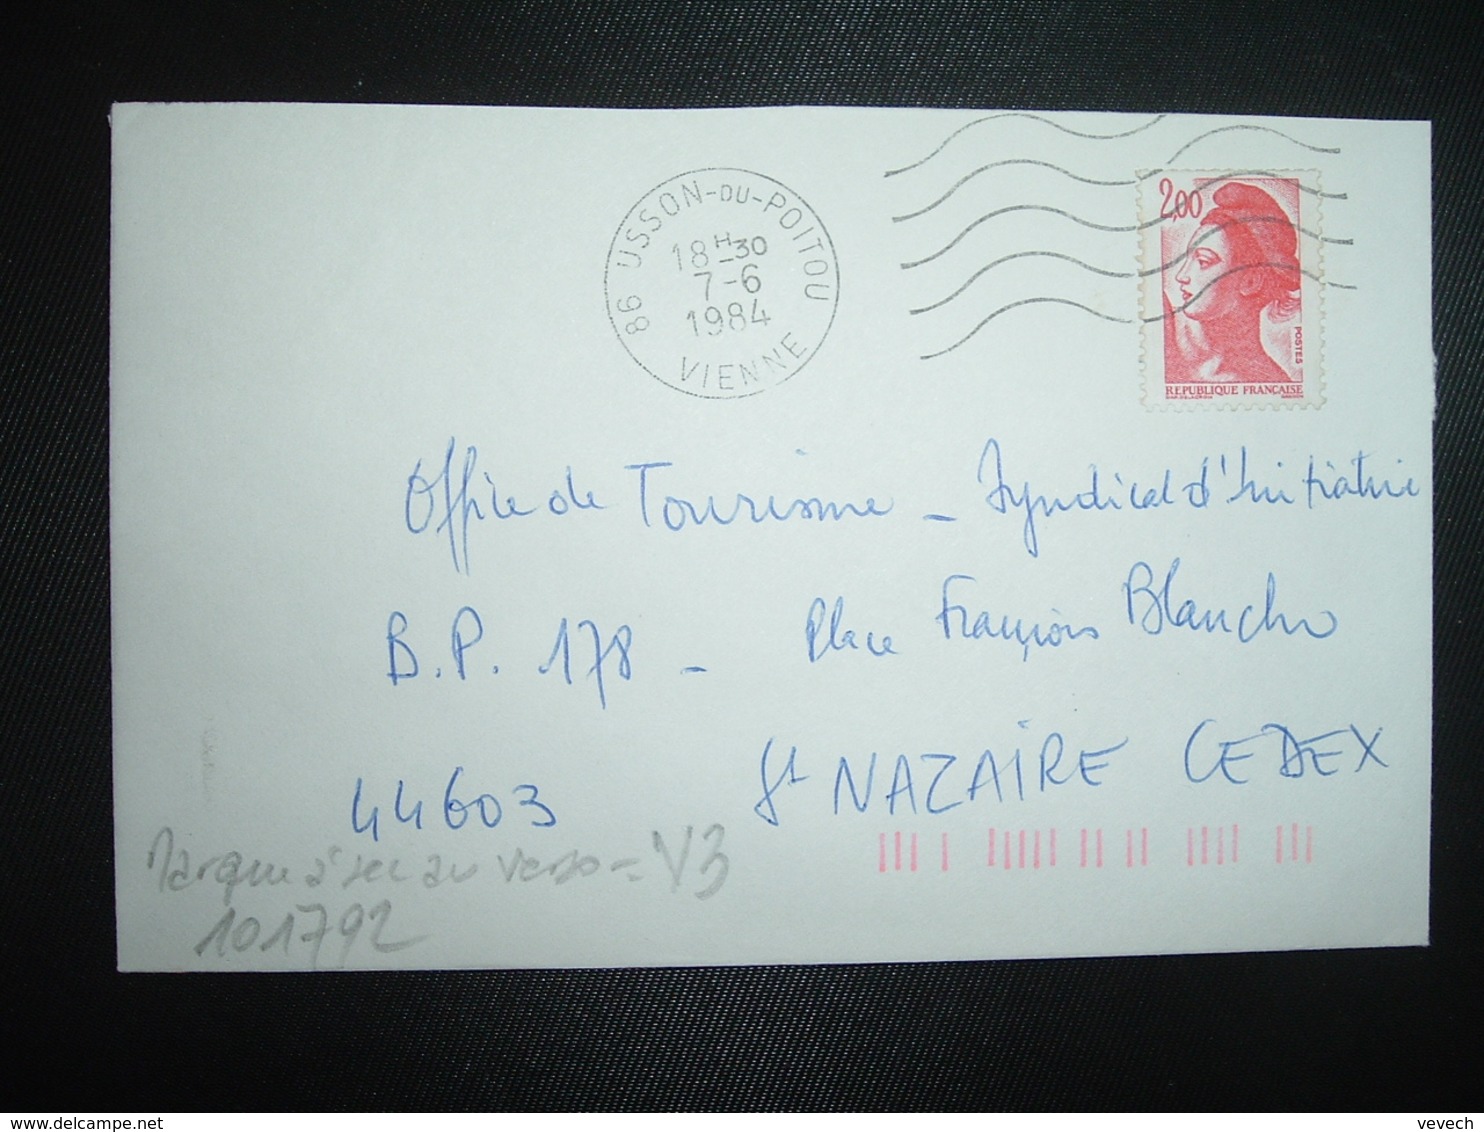 86 USSON-DU-POITOU
18H30
7-6
1984
VIENNE
2,00
POSTES
REPUBLIQUE FRANÇAISE
Office de Tourisme - Syndicat d'Initiative
B.P. 178 - Place François Blancho
44603 St NAZAIRE CEDEX
Marque à sec au verso - V3
101792
delcampe.net
vevech